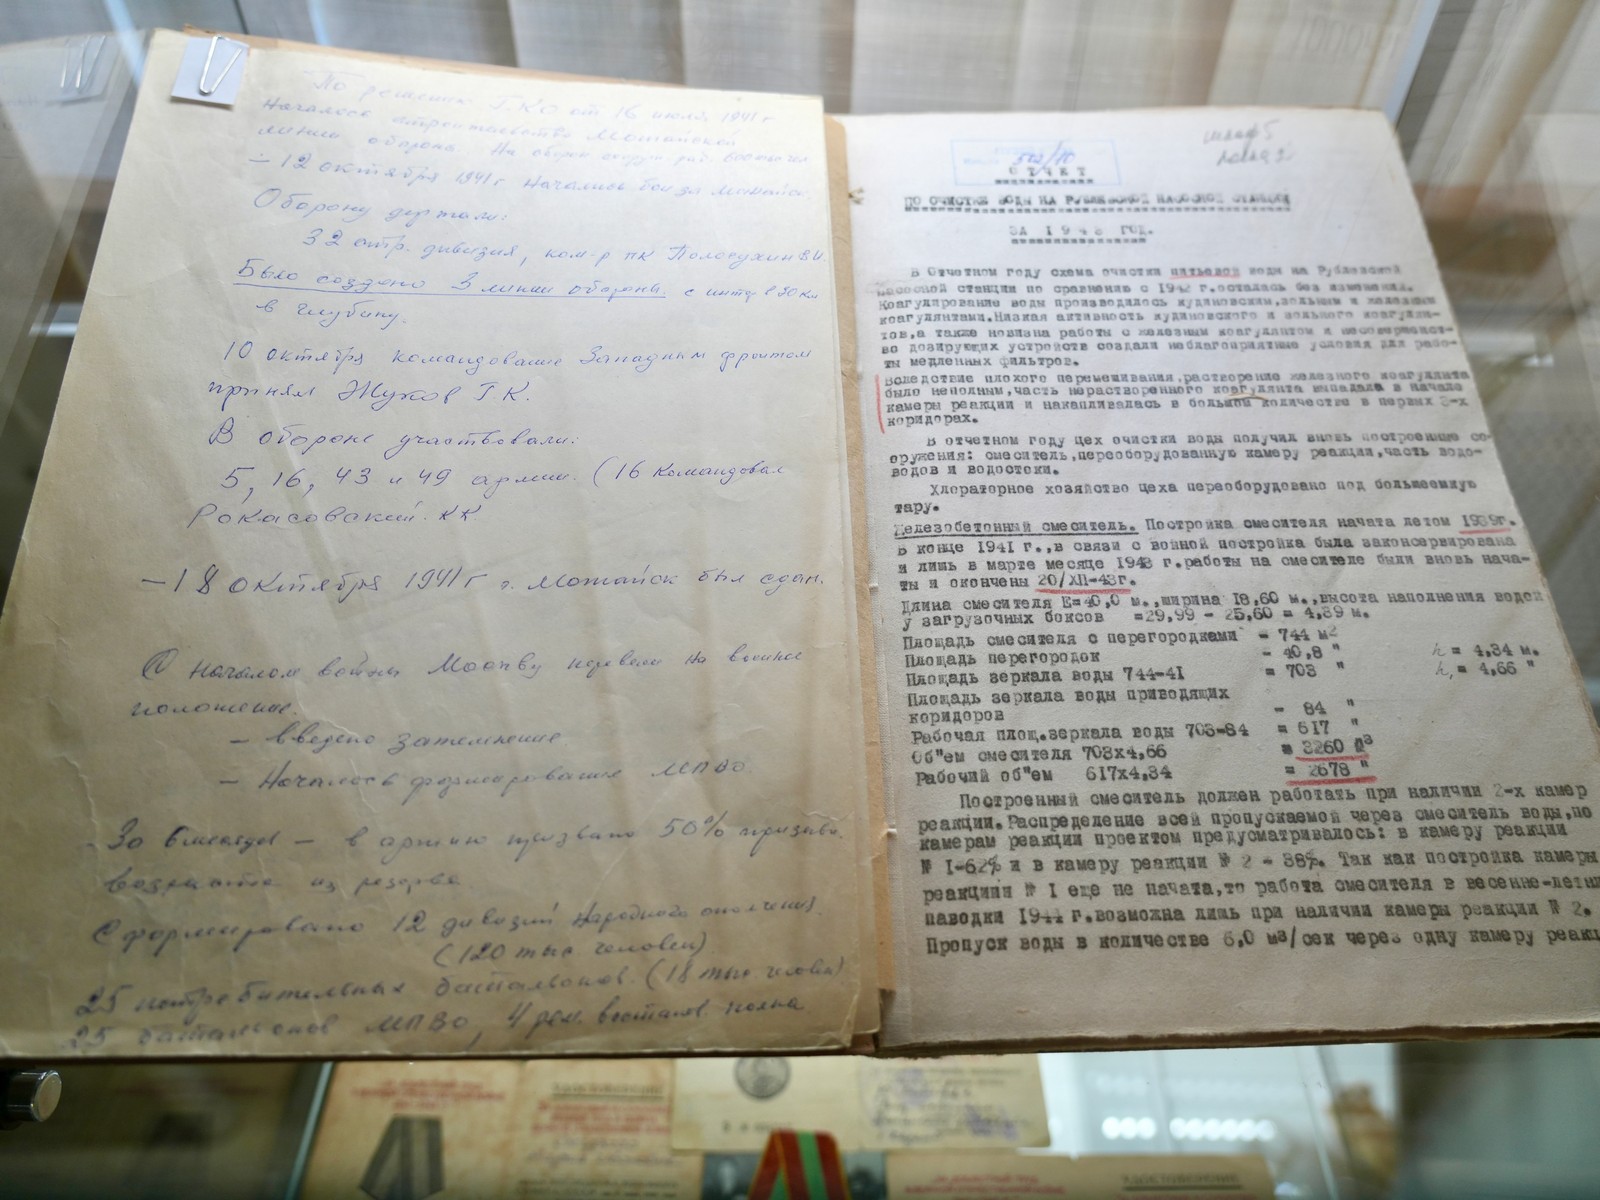 По решению ГКО от 16 июля 1941 г
началось строительство Можайской
линии обороны. На оборон
– 12 октября 1941 г начались бои за Можайск.
Оборону держали:
32 стр. дивизия, ком-р пк Полосухин В И.
Было создано 3 линии обороны. с интер в 30 км
в глубину.
10 октября командование Западным фронтом
принял Жуков Г.К.
В обороне участвовали:
5, 16, 43 и 49 армии. (16 командовал
Рокасовский. КК.
– 18 октября 1941 г г. Можайск был сдан.
С началом войны Москву перевели на военное
положение.
– введено затемнение.
– Началось формирование МПВО.
– За 6 месяцев – в армию призвано 50% призывн.
возраста из резерва.
Сформировано 12 дивизий народного ополчения.
(120 тыс человек)
25 истребительных батальонов. (18 тыс человек)
25 батальонов МПВО, 4 рем. восстанов. полка
шкаф 5
полка 2
502/10
ОТЧЕТ
ПО ОЧИСТКЕ ВОДЫ НА РУБЛЕВСКОЙ НАСОСНОЙ СТАНЦИИ
ЗА 1943 ГОД.
В Отчетном году схема очистки питьевой воды на Рублевской
насосной станции по сравнению с 1942 г.осталась без изменения.
Коагулирование воды производилось кудиновским,зольным и железным
коагулянтами.Низкая активность кудиновского и зольного коагулян-
тов,а также новизна работы с железным коагулянтом и несовершенст-
во дозирующих устройств создали неблагоприятные условия для рабо-
ты медленных фильтров.
Вследствие плохого перемешивания,растворение железного коагулянта
было неполным,часть нерастворенного коагулянта выпадала в начале
камеры реакции и накапливалась в большом количестве в первых 3-х
коридорах.
В отчетном году цех очистки воды получил вновь построенные со-
оружения: смеситель,переоборудованную камеру реакции,часть водо-
водов и водостоки.
Хлораторное хозяйство цеха переоборудовано под большеемкую
тару.
Железобетонный смеситель. Постройка смесителя начата летом 1939г.
В конце 1941 г.,в связи с войной постройка была законсервирована
и лишь в марте месяце 1943 г.работы на смесителе были вновь нача-
ты и окончены 20/XII-43г.
Длина смесителя Е=40,0 м.,ширина 18,60 м.,высота наполнения водой
у загрузочных боксов =29,99 – 25,60 = 4,39 м.
Площадь смесителя с перегородками = 744 м2
Площадь перегородок – 40,8 " h = 4,34 м.
Площадь зеркала воды 744-41 = 703 " h, = 4,66 "
Площадь зеркала воды приводящих
коридоров – 84 "
Рабочая площ.зеркала воды 703-84 = 617 "
Об"ем смесителя 703х4,66 = 3260 м3
Рабочий об"ем 617х4,34 = 2678 "
Построенный смеситель должен работать при наличии 2-х камер
реакции.Распределение всей пропускаемой через смеситель воды,по
камерам реакции проектом предусматривалось: в камеру реакции
№ 1-62% и в камеру реакции № 2 – 38%. Так как постройка камеры
реакции № 1 еще не начата,то работа смесителя в весенне-летни
паводки 1944 г.возможна лишь при наличии камеры реакции № 2.
Пропуск воды в количестве 6,0 м3/сек через одну камеру реакц